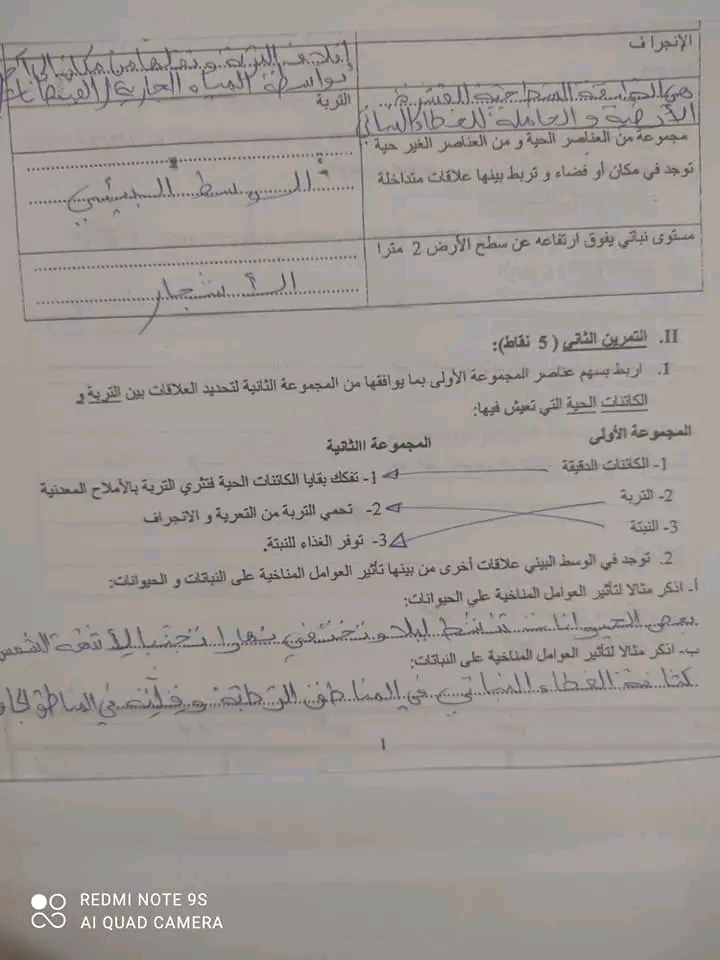 الإنجراف
إتلاف التربة و نقلها من مكان إلى
بواسطة المياه الجارية
التربة
هي الطبقة السطحية للقشرة
الأرضية و الحاملة للغطاء النباتي
مجموعة من العناصر الحية و من العناصر الغير حية
توجد في مكان أو فضاء و تربط بينها علاقات متداخلة
الوسط البيئي
مستوى نباتي يفوق ارتفاعه عن سطح الأرض 2 مترا
الأشجار
II. التمرين الثاني ( 5 نقاط):
1. اربط بسهم عناصر المجموعة الأولى بما يوافقها من المجموعة الثانية لتحديد العلاقات بين التربة و
الكائنات الحية التي تعيش فيها:
المجموعة الأولى المجموعة االثانية
1- الكائنات الدقيقة 1- تفكك بقايا الكائنات الحية فتثري التربة بالأملاح المعدنية
2- التربة 2- تحمي التربة من التعرية و الانجراف
3- النبتة 3- توفر الغذاء للنبتة.
2. توجد في الوسط البيئي علاقات أخرى من بينها تأثير العوامل المناخية على النباتات و الحيوانات:
أ- اذكر مثالا لتأثير العوامل المناخية على الحيوانات:
بعض الحيوانات تنشط ليلا و تختفي نهارا تجنبا لأشعة الشمس
ب- اذكر مثالا لتأثير العوامل المناخية على النباتات:
كثافة الغطاء النباتي في المناطق الرطبة و قلته في المناطق
1
REDMI NOTE 9S
AI QUAD CAMERA